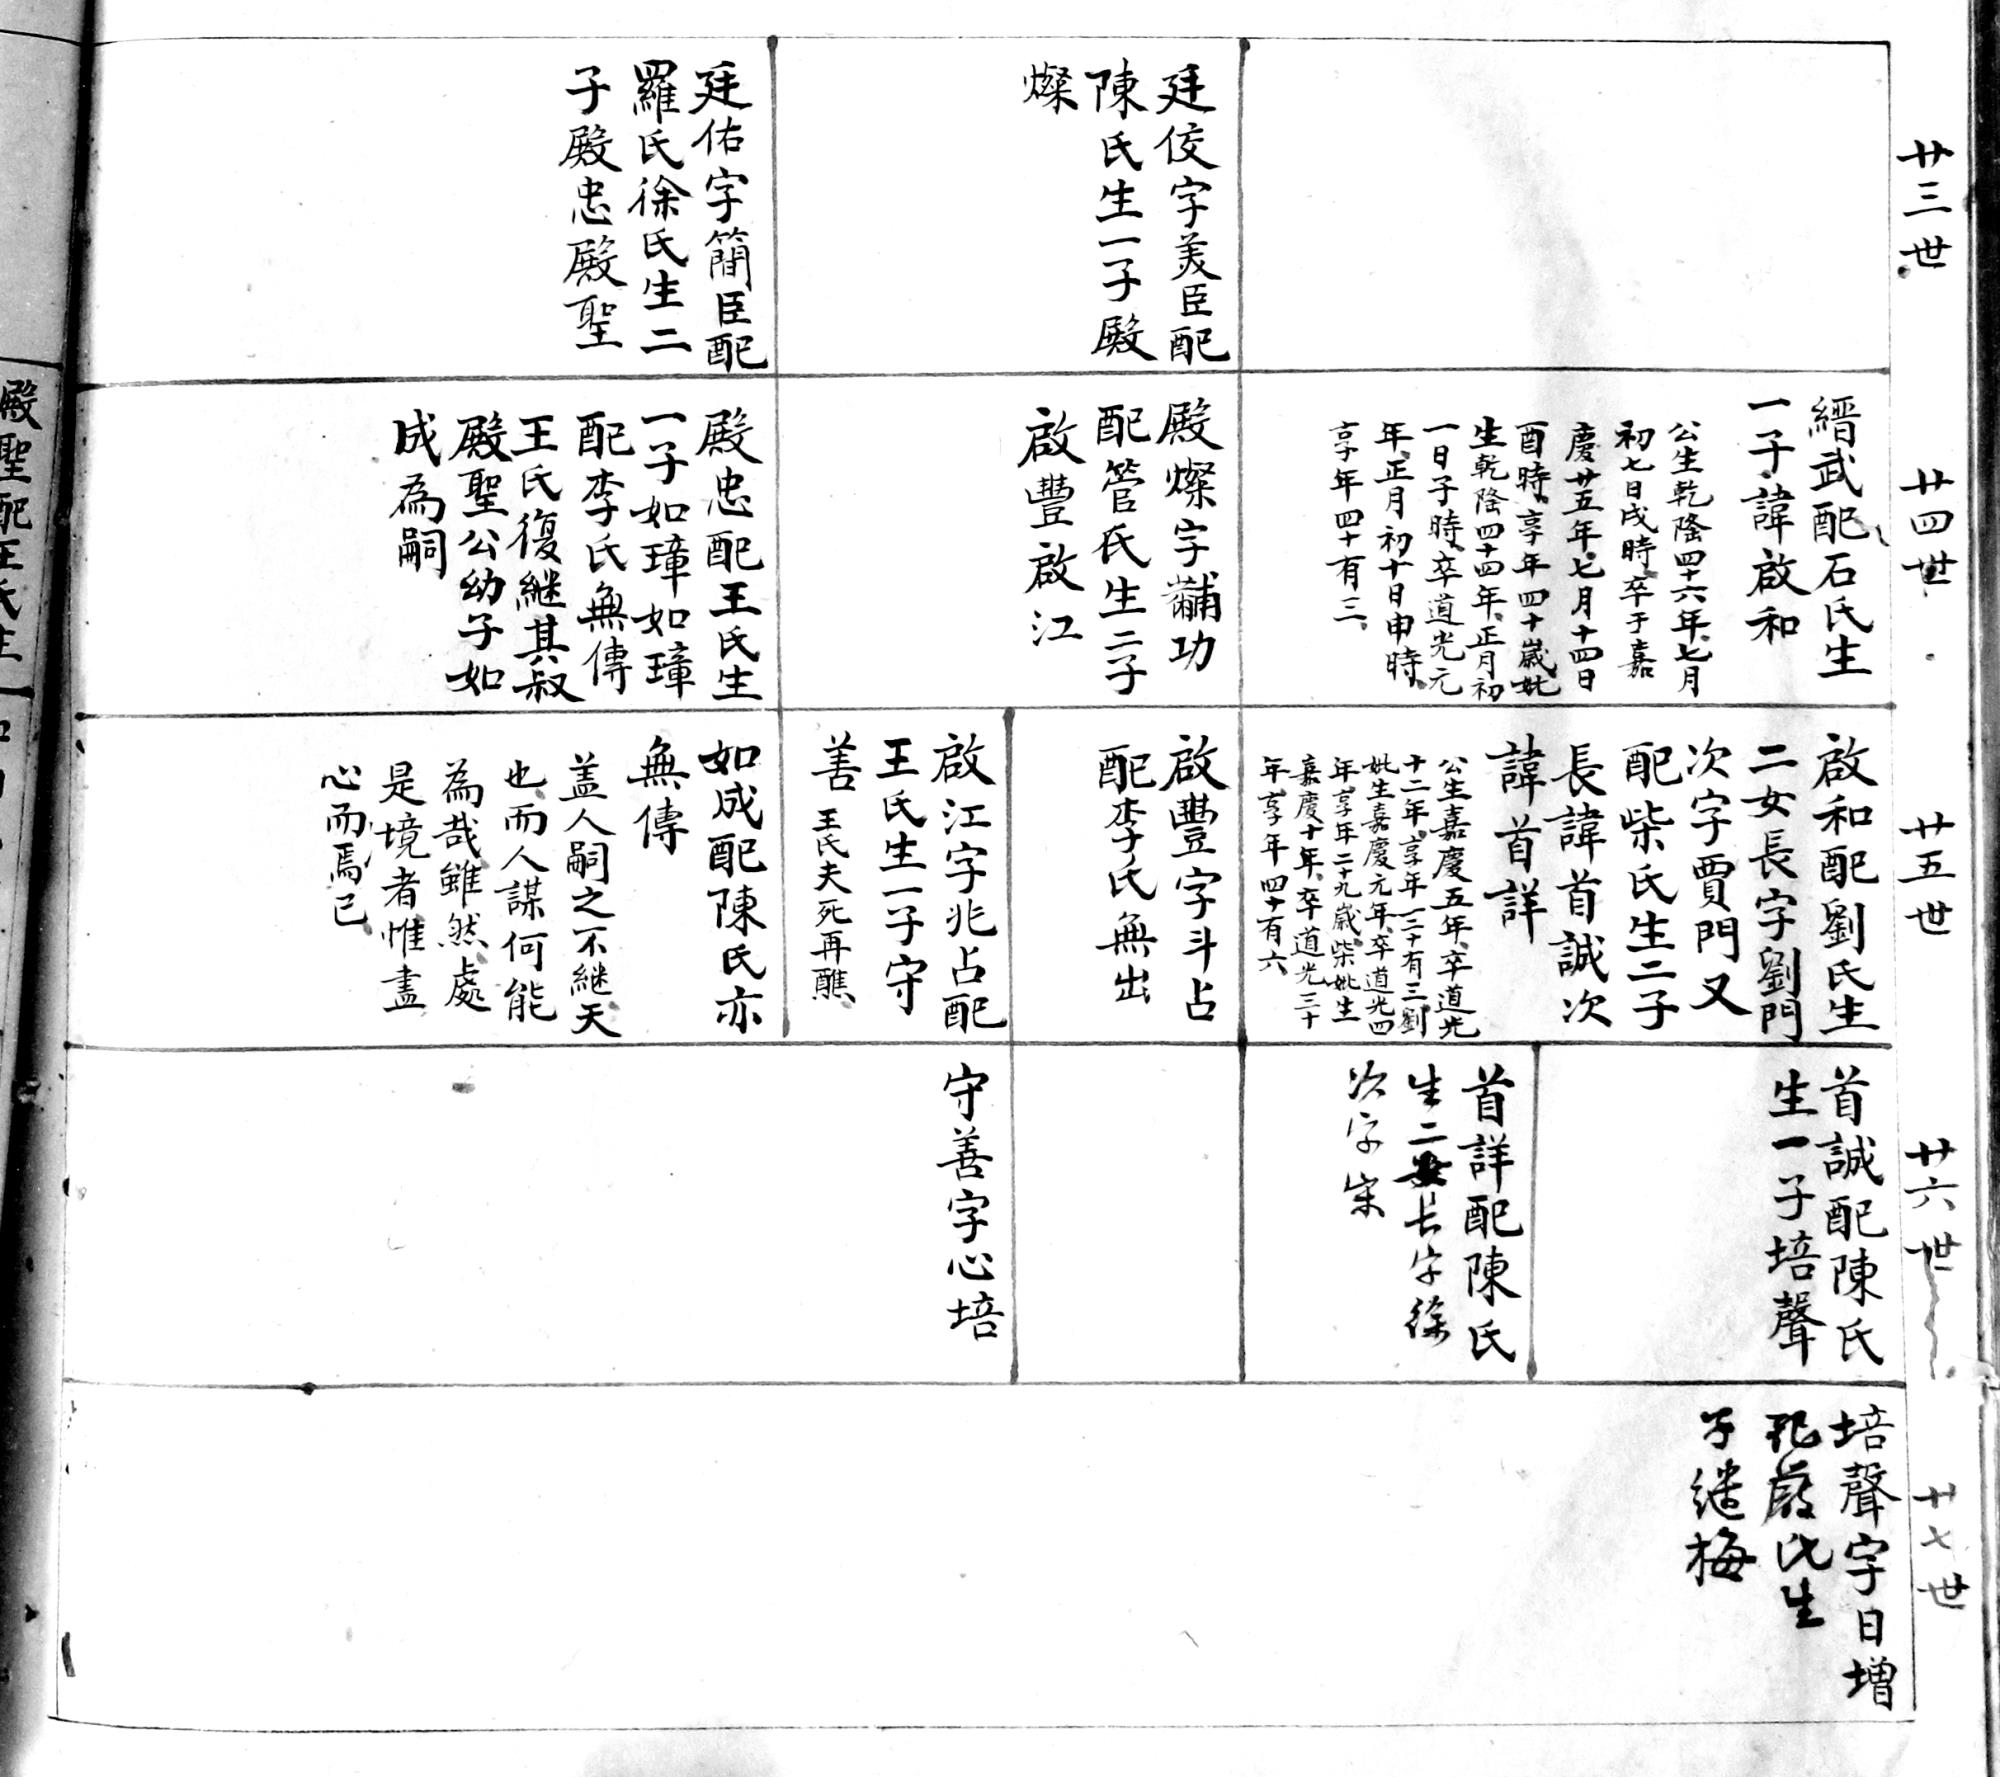 廿三世
廷佼字美臣配
陳氏生一子殿
燦
廷佑字簡臣配
羅氏徐氏生二
子殿忠殿聖
廿四世
縉武配石氏生
一子諱啟和
公生乾隆四十六年七月
初七日戌時卒于嘉
慶廿五年七月十四日
酉時享年四十歲妣
生乾隆四十四年正月初
一日子時卒道光元
年正月初十日申時
享年四十有三
殿燦字黼功
配管氏生二子
啟豐啟江
殿忠配王氏生
一子如璋如璋
配李氏無傳
王氏復繼其叔
殿聖公幼子如
成為嗣
廿五世
啟和配劉氏生
二女長字劉門
次字賈門又
配柴氏生二子
長諱首誠次
諱首詳
公生嘉慶五年卒道光
十二年享年三十有三劉
妣生嘉慶元年卒道光四
年享年二十九歲柴妣生
嘉慶十年卒道光三十
年享年四十有六
啟豐字斗占
配李氏無出
啟江字兆占配
王氏生一子守
善 王氏夫死再醮
如成配陳氏亦
無傳
盖人嗣之不繼天
也而人謀何能
為哉雖然處
是境者惟盡
心而焉已
廿六世
首誠配陳氏
生一子培聲
首詳配陳氏
生二女長字徐
次字宋
守善字心培
廿七世
培聲字日增
配嚴氏生
子繼梅
殿聖配王氏生